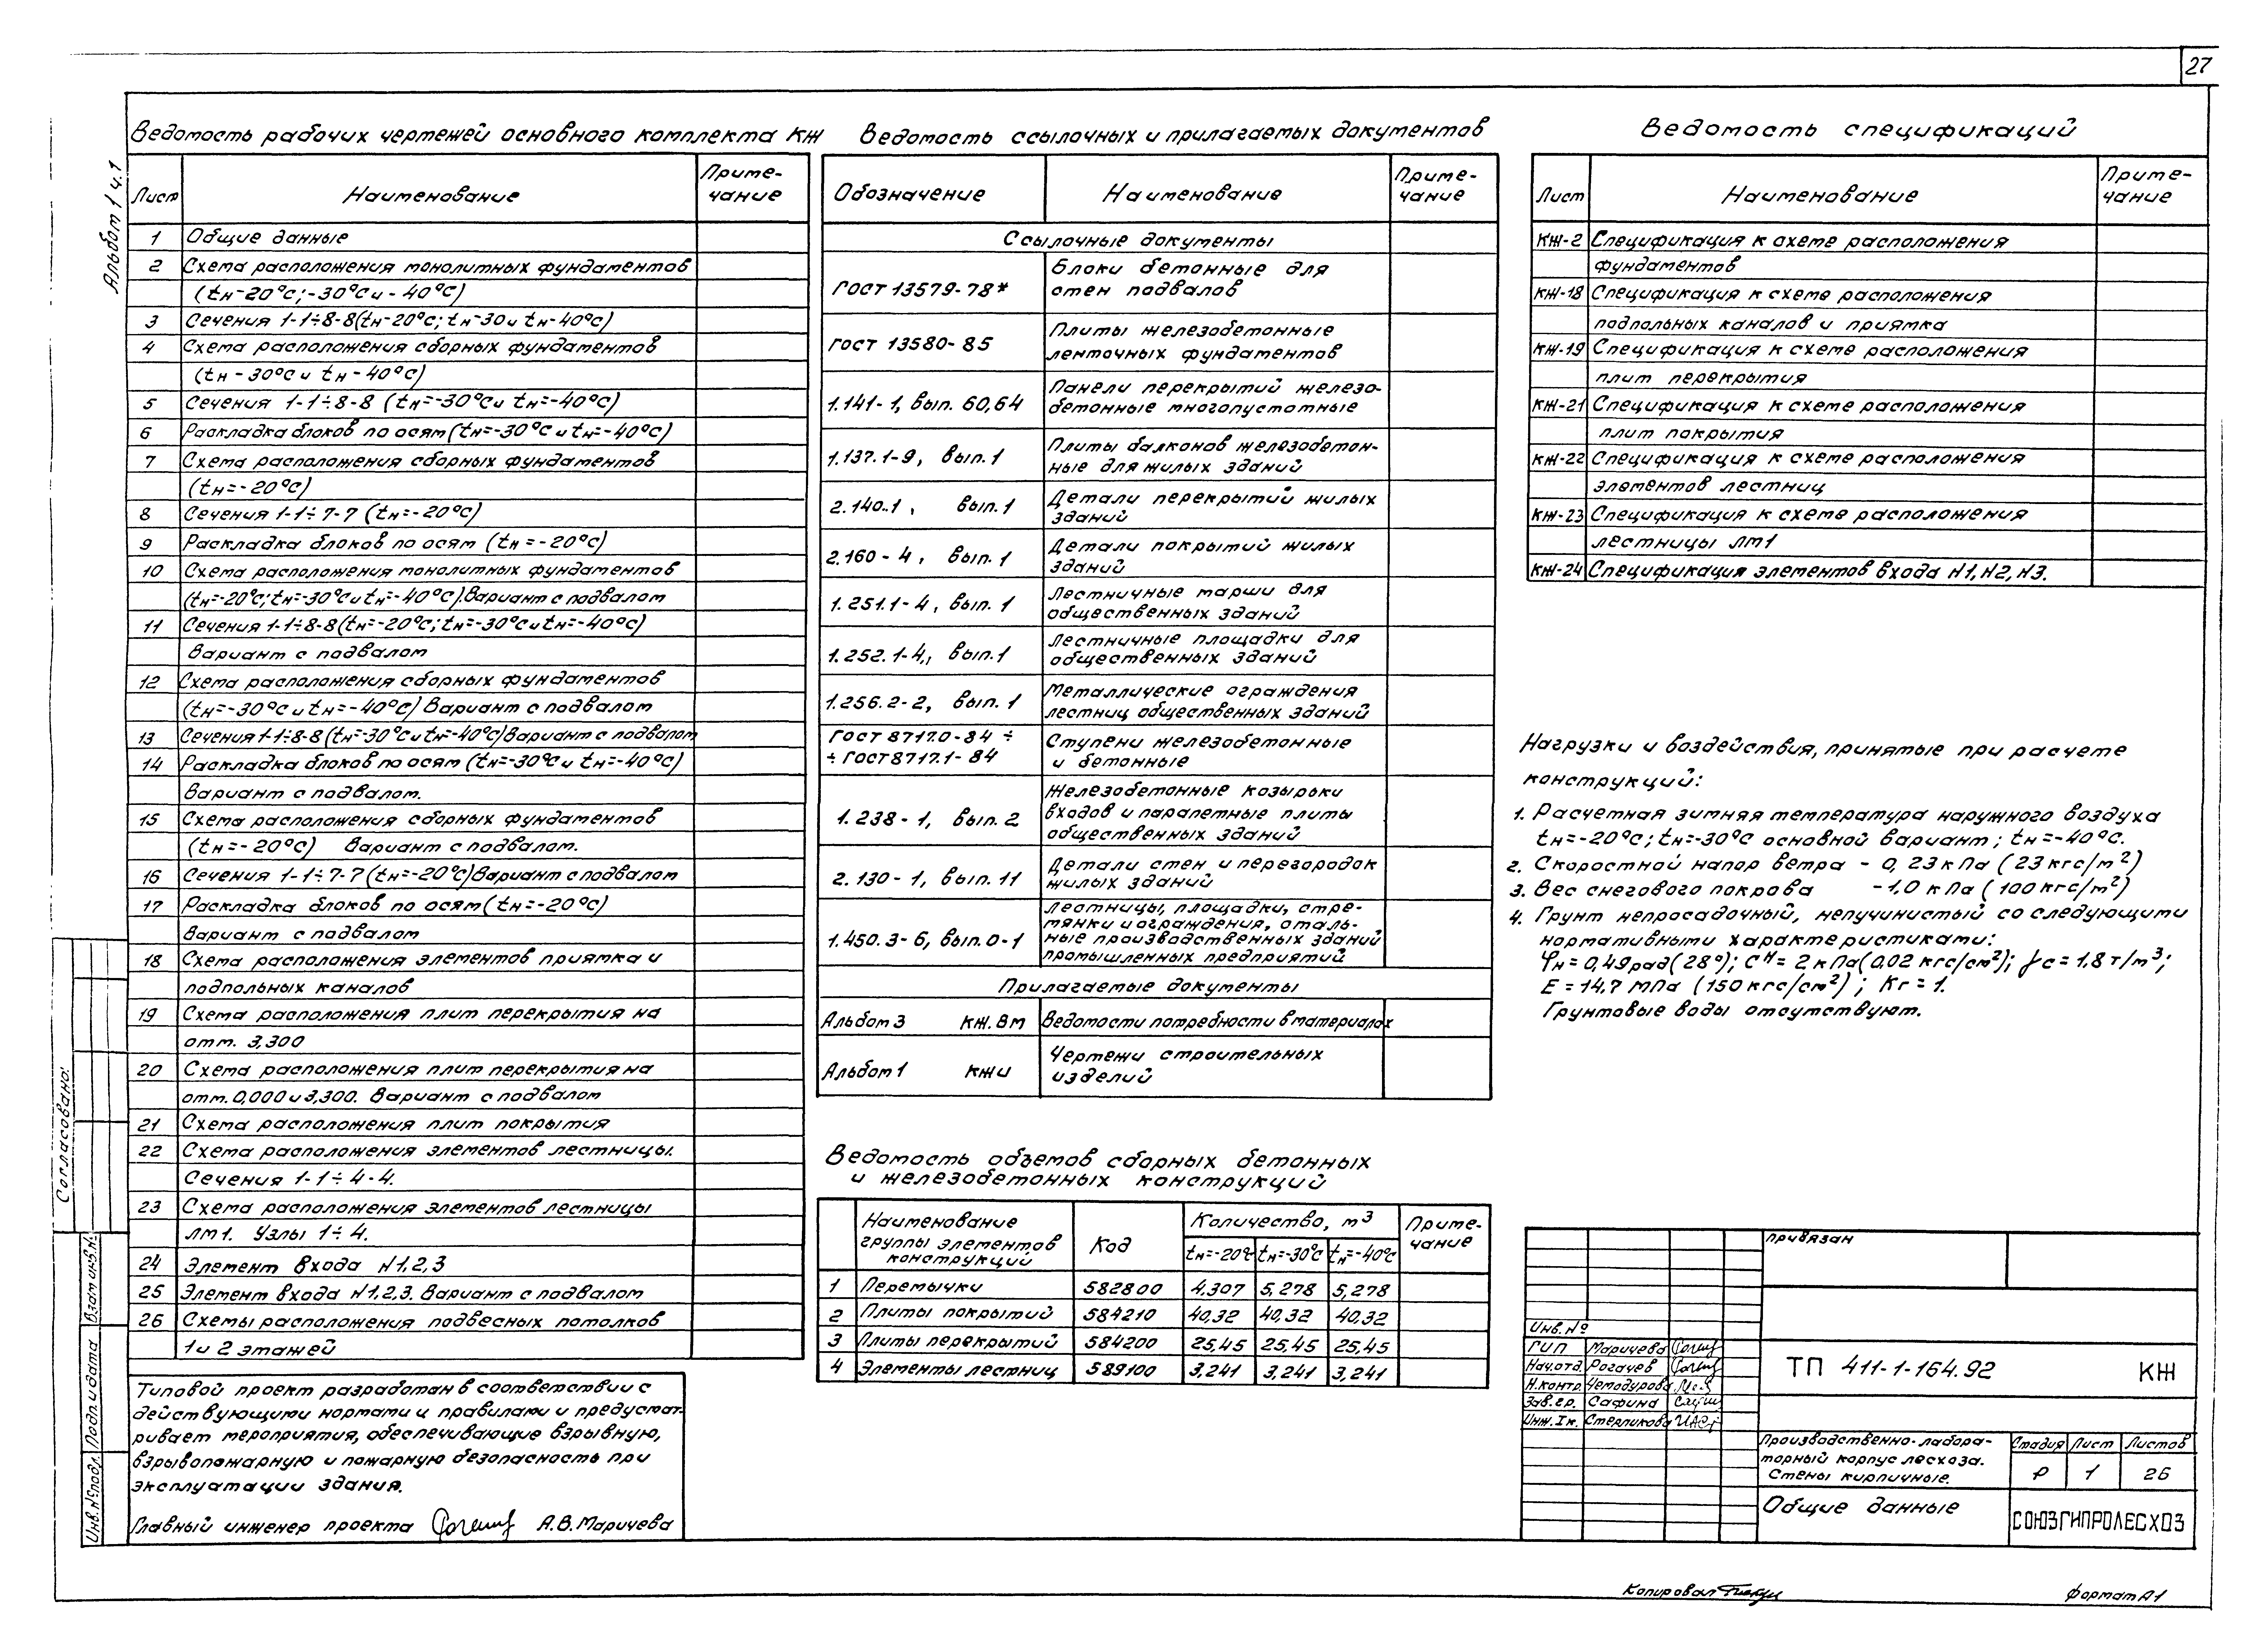 27
Альбом 1 ч.1
Ведомость рабочих чертежей основного комплекта КЖ
Лист Наименование Приме-
чание
1 Общие данные
2 Схема расположения монолитных фундаментов
(tн-20°С; -30°С и -40°С)
3 Сечения 1-1÷8-8(tн-20°С; tн-30 и tн-40°С)
4 Схема расположения сборных фундаментов
(tн-30°С и tн-40°С)
5 Сечения 1-1÷8-8 (tн=-30°С и tн=-40°С)
6 Раскладка блоков по осям (tн=-30°С и tн=-40°С)
7 Схема расположения сборных фундаментов
(tн=-20°С)
8 Сечения 1-1÷7-7 (tн=-20°С)
9 Раскладка блоков по осям (tн=-20°С)
10 Схема расположения монолитных фундаментов
(tн=-20°С; tн=-30°С и tн=-40°С). Вариант с подвалом
11 Сечения 1-1÷8-8(tн=-20°С; tн=-30°С и tн=-40°С)
Вариант с подвалом
12 Схема расположения сборных фундаментов
(tн=-30°С и tн=-40°С) Вариант с подвалом
13 Сечения 1-1÷8-8(tн=-30°С и tн=-40°С) Вариант с подвалом
14 Раскладка блоков по осям (tн=-30°С и tн=-40°С)
Вариант с подвалом.
15 Схема расположения сборных фундаментов
(tн=-20°С) Вариант с подвалом.
16 Сечения 1-1÷7-7 (tн=-20°С) Вариант с подвалом
17 Раскладка блоков по осям (tн=-20°С)
Вариант с подвалом
18 Схема расположения элементов приямка и
подпольных каналов
19 Схема расположения плит перекрытия на
отм. 3,300
20 Схема расположения плит перекрытия на
отм. 0,000 и 3,300. Вариант с подвалом
21 Схема расположения плит покрытия
22 Схема расположения элементов лестницы.
Сечения 1-1÷4-4.
23 Схема расположения элементов лестницы
ЛМ1. Узлы 1÷4.
24 Элемент входа N1,2,3
25 Элемент входа N1,2,3. Вариант с подвалом
26 Схемы расположения подвесных потолков
1 и 2 этажей
Типовой проект разработан в соответствии с
действующими нормами и правилами и предусмат-
ривает мероприятия, обеспечивающие взрывную,
взрывопожарную и пожарную безопасность при
эксплуатации здания.
Главный инженер проекта А.В.Маричева
Ведомость ссылочных и прилагаемых документов
Обозначение Наименование Приме-
чание
Ссылочные документы
ГОСТ 13579-78* Блоки бетонные для
стен подвалов
ГОСТ 13580-85 Плиты железобетонные
ленточных фундаментов
1.141-1, вып. 60,64 Панели перекрытий железо-
бетонные многопустотные
1.137.1-9, вып. 1 Плиты балконов железобетон-
ные для жилых зданий
2.140.1, вып. 1 Детали перекрытий жилых
зданий
2.160-4, вып. 1 Детали покрытий жилых
зданий
1.251.1-4, вып. 1 Лестничные марши для
общественных зданий
1.252.1-4, вып. 1 Лестничные площадки для
общественных зданий
1.256.2-2, вып. 1 Металлические ограждения
лестниц общественных зданий
ГОСТ 8717.0-84 ÷
÷ ГОСТ 8717.1-84 Ступени железобетонные
и бетонные
1.238-1, вып. 2 Железобетонные козырьки
входов и парапетные плиты
общественных зданий
2.130-1, вып. 11 Детали стен и перегородок
жилых зданий
1.450.3-6, вып. 0-1 Лестницы, площадки, стре-
мянки и ограждения, сталь-
ные производственных зданий
промышленных предприятий
Прилагаемые документы
Альбом 3 КЖ.ВМ Ведомости потребности в материалах
Альбом 1 КЖИ Чертежи строительных
изделий
Ведомость объемов сборных бетонных
и железобетонных конструкций
Наименование
группы элементов
конструкций Код Количество, м³ Приме-
чание
tн=-20°С tн=-30°С tн=-40°С
1 Перемычки 582800 4,307 5,278 5,278
2 Плиты покрытий 584210 40,32 40,32 40,32
3 Плиты перекрытий 584200 25,45 25,45 25,45
4 Элементы лестниц 589100 3,241 3,241 3,241
Ведомость спецификаций
Лист Наименование Приме-
чание
КЖ-2 Спецификация к схеме расположения
фундаментов
КЖ-18 Спецификация к схеме расположения
подпольных каналов и приямка
КЖ-19 Спецификация к схеме расположения
плит перекрытия
КЖ-21 Спецификация к схеме расположения
плит покрытия
КЖ-22 Спецификация к схеме расположения
элементов лестниц
КЖ-23 Спецификация к схеме расположения
лестницы ЛМ1
КЖ-24 Спецификация элементов входа N1, N2, N3.
Нагрузки и воздействия, принятые при расчете
конструкций:
1. Расчетная зимняя температура наружного воздуха
tн=-20°С; tн=-30°С основной вариант; tн=-40°С.
2. Скоростной напор ветра - 0,23 кПа (23 кгс/м²)
3. Вес снегового покрова - 1,0 кПа (100 кгс/м²)
4. Грунт непросадочный, непучинистый со следующими
нормативными характеристиками:
φн=0,49 рад(28°); Сн=2 кПа(0,02 кгс/см²); γс=1,8 т/м³;
Е=14,7 МПа (150 кгс/см²); Кг=1.
Грунтовые воды отсутствуют.
Привязан
Инв.№
ГИП Маричева
Нач.отд. Рогачев
Н.контр. Чемодурова
Зав.гр. Сафина
Инж.Iк. Стерликова
ТП 411-1-164.92 КЖ
Производственно-лабора-
торный корпус лесхоза.
Стены кирпичные.
Стадия Лист Листов
Р 1 26
Общие данные
СОЮЗГИПРОЛЕСХОЗ
Согласовано:
Взам инв.№
Подп. и дата
Инв.№ подл.
Копировал
Формат А1